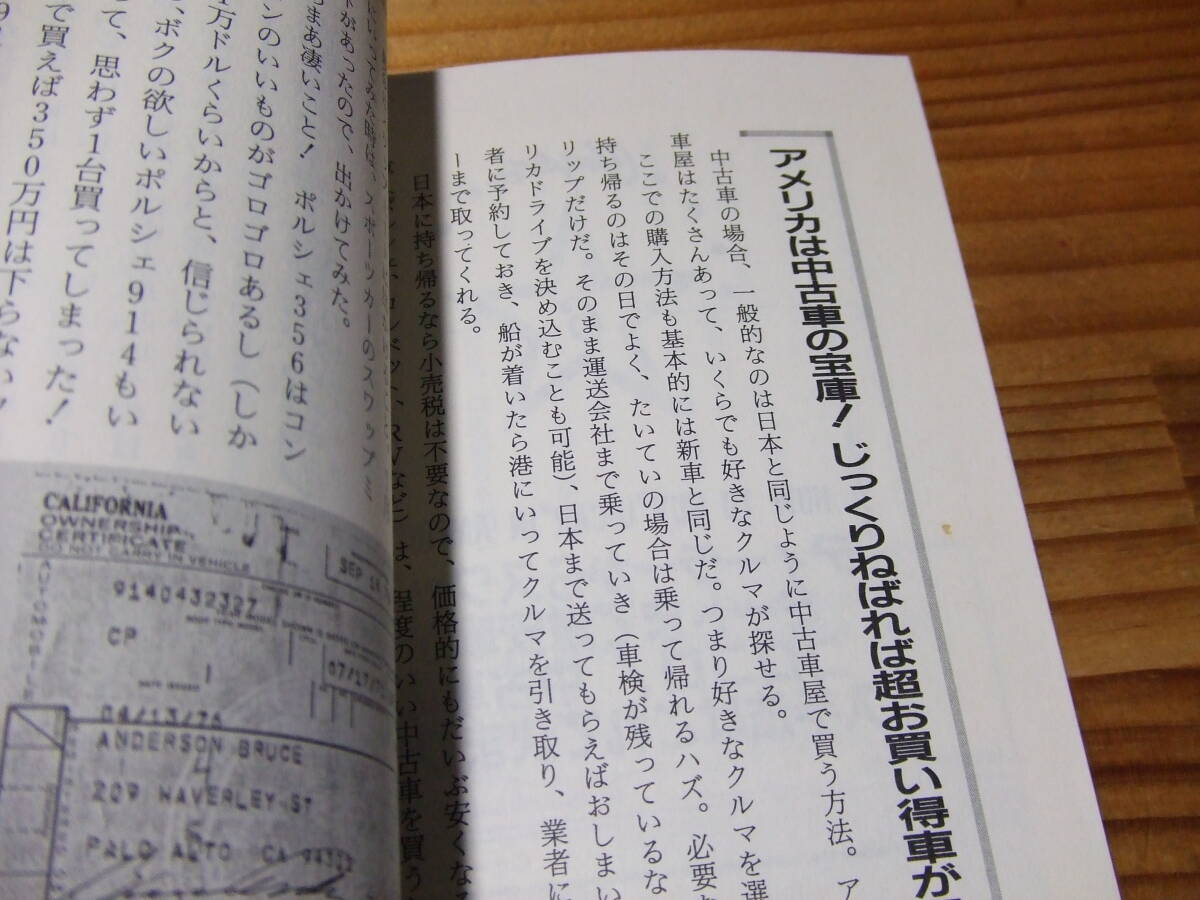 アメリカは中古車の宝庫！ じっくりねばれば超お買い得車が
中古車の場合、一般的なのは日本と同じように中古車屋で買う方法。ア
車屋はたくさんあって、いくらでも好きなクルマが探せる。
ここでの購入方法も基本的には新車と同じだ。つまり好きなクルマを選
持ち帰るのはその日でよく、たいていの場合は乗って帰れるハズ。必要な
リップだけだ。そのまま運送会社まで乗っていき（車検が残っているな
リカドライブを決め込むことも可能）、日本まで送ってもらえばおしまい
者に予約しておき、船が着いたら港にいってクルマを引き取り、業者に
ーまで取ってくれる。
日本に持ち帰るなら小売税は不要なので、価格的にもだいぶ安くな
は、程度のいい中古車を買う
にいってみた時は、スポーツカーのスワップミ
があったので、出かけてみた。
まあ凄いこと！ ポルシェ356はコン
ンのいいものがゴロゴロあるし（しか
万ドルくらいからと、信じられない
、ボクの欲しいポルシェ914もい
て、思わず1台買ってしまった！
で買えば350万円は下らない！
CALIFORNIA
OWNERSHIP
CERTIFICATE
DO NOT CARRY IN VEHICLE
AUTOMOBILE
SEP
9140432327
CP
DATE ISSUED
04/13/76
ANDERSON BRUCE
209 WAVERLEY ST
PALO ALTO CA